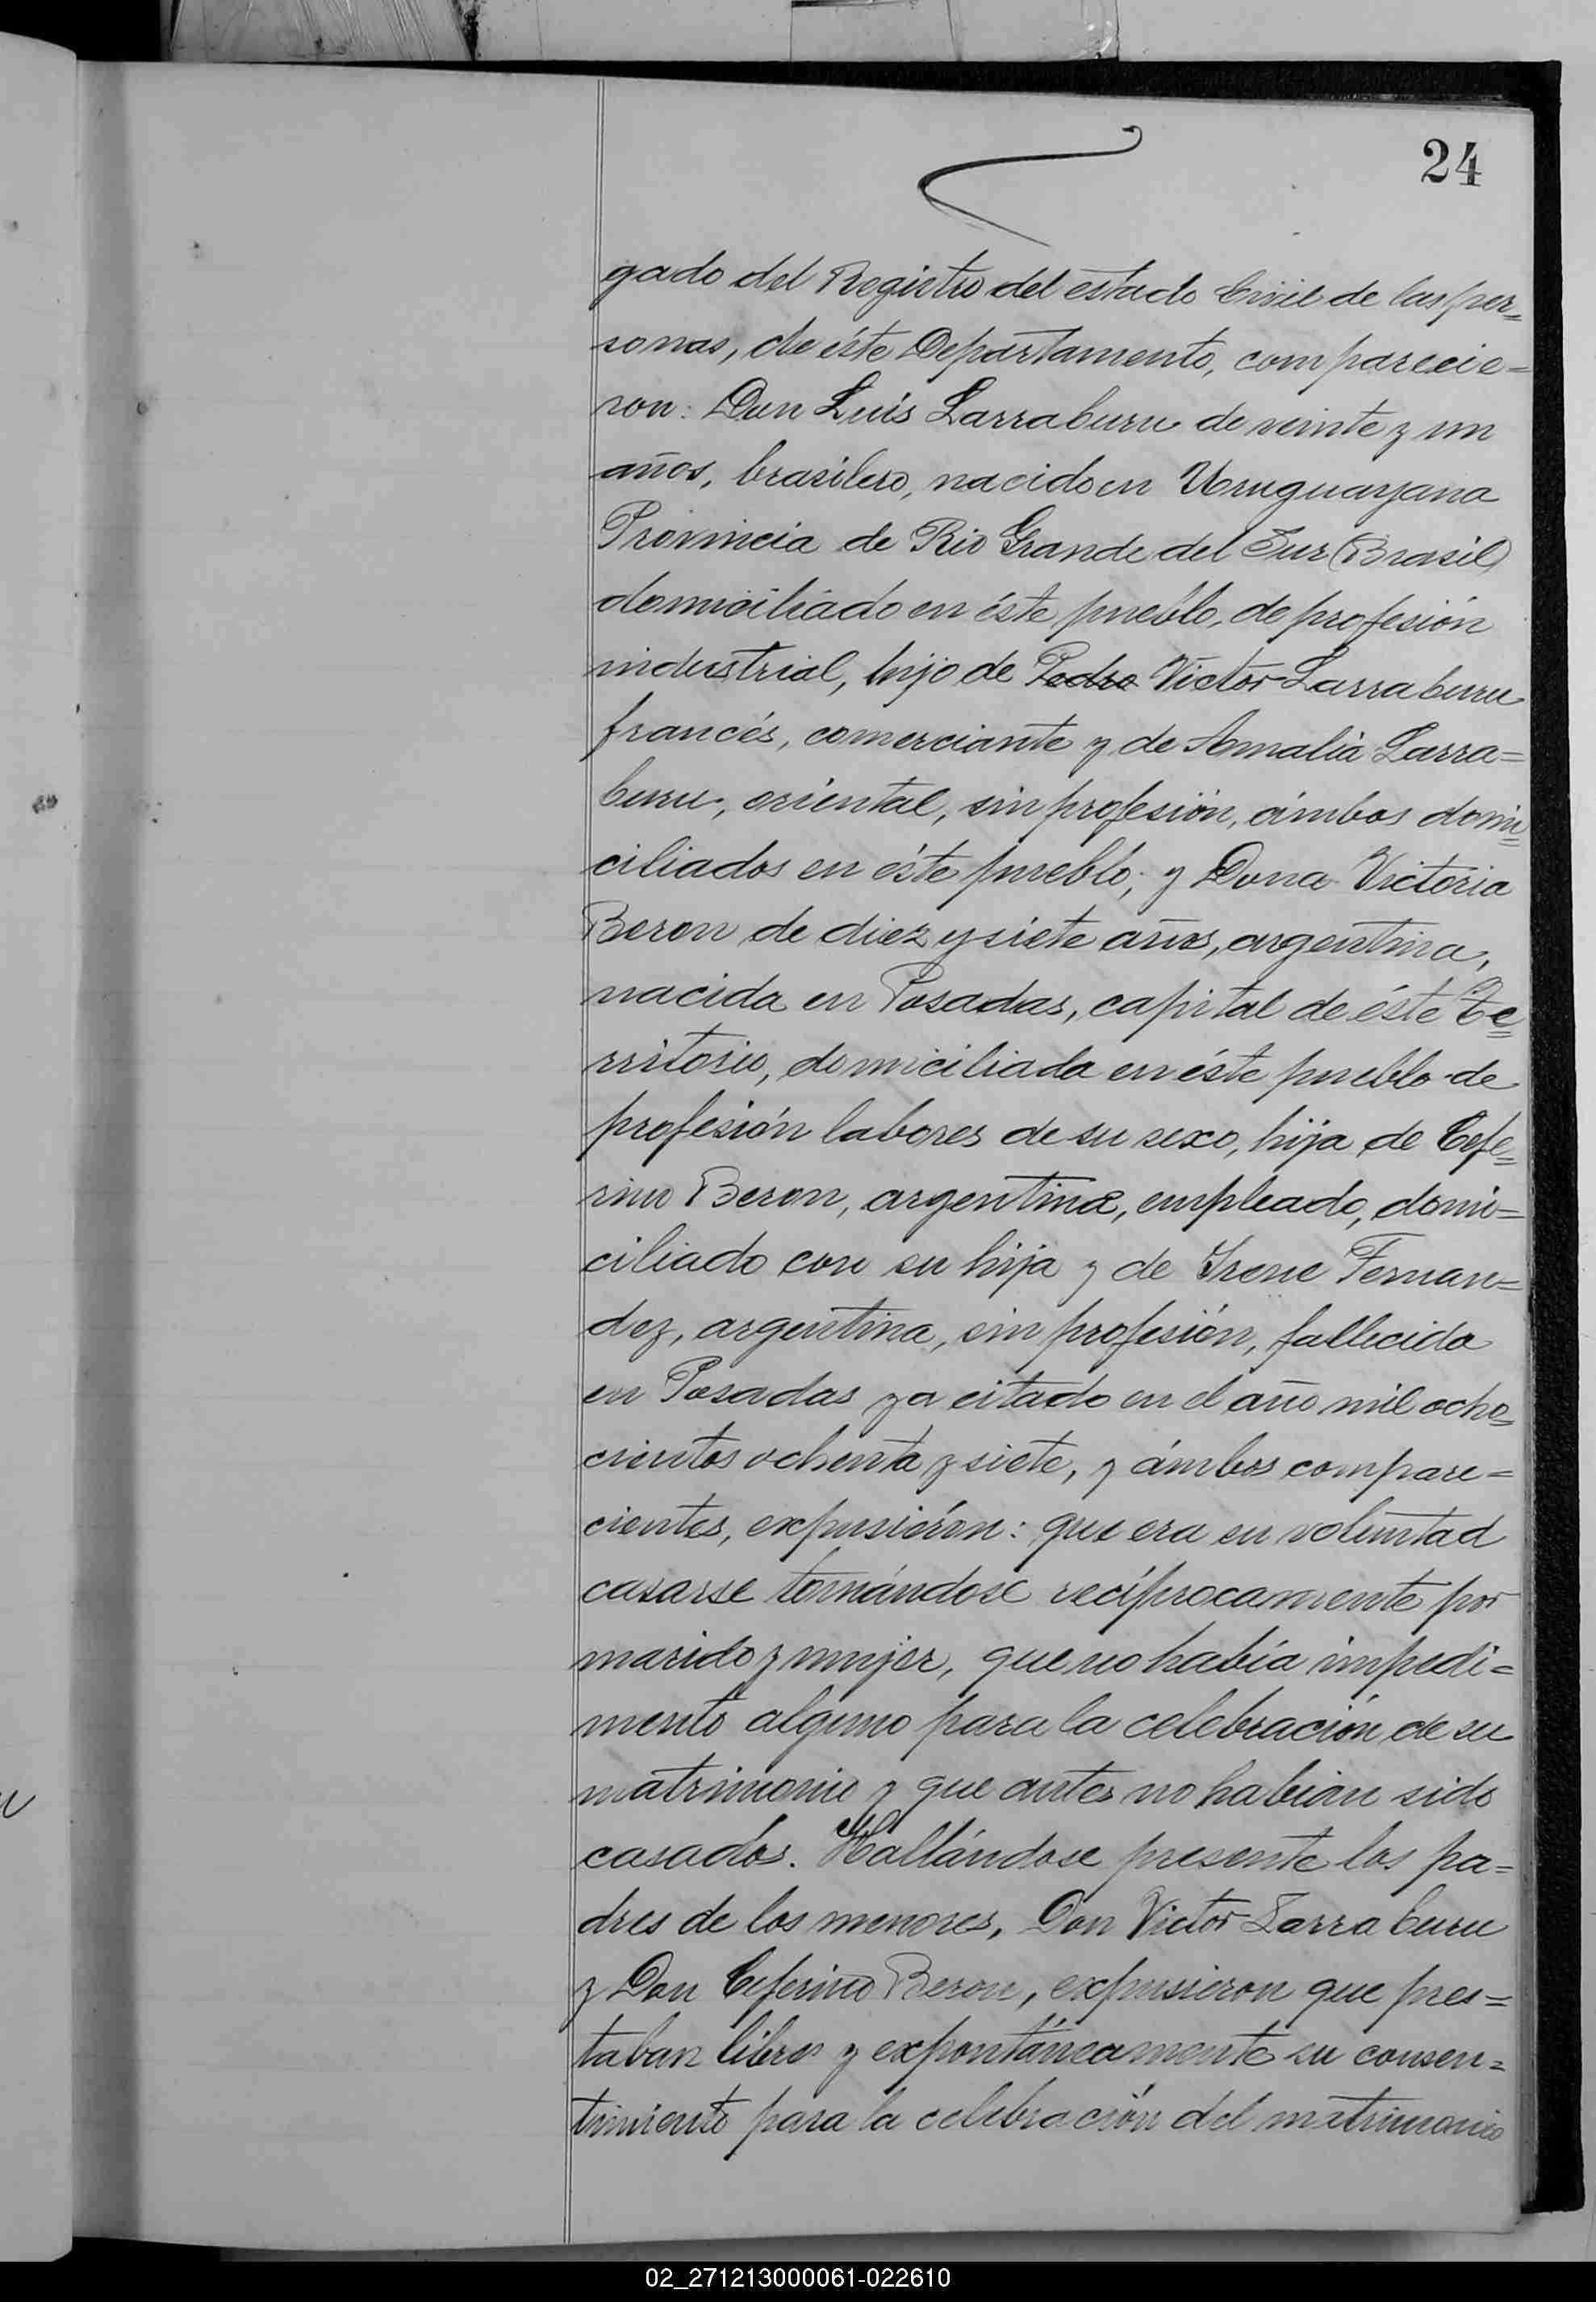 24
gado del Registro del estado Civil de las per=
sonas, de éste Departamento, comparecie=
ron: Don Luis Larraburu de veinte y un
años, brasilero, nacido en Uruguayana
Provincia de Rio Grande del Sur (Brasil)
domiciliado en éste pueblo, de profesión
industrial, hijo de Pedro Victor Larraburu
francés, comerciante y de Amalia Larra=
buru, oriental, sin profesión, ámbos domi=
ciliados en éste pueblo; y Dona Victoria
Beron de diez y siete años, argentina,
nacida en Posadas, capital de éste Te=
rritorio, domiciliada en éste pueblo de
profesión labores de su sexo, hija de Cefe=
rino Beron, argentino, empleado, domi=
ciliado con su hija y de Irene Fernan=
dez, argentina, sin profesión, fallecida
en Posadas ya citado en el año mil ocho=
cientos ochenta y siete, y ámbos compare=
cientes, expusiéron: que era su voluntad
casarse tomándose recíprocamente por
marido y mujer, que no había impedi=
mento alguno para la celebración de su
matrimonio y que antes no habian sido
casados. Hallándose presente los pa=
dres de los menores, Don Victor Larraburu
y Don Ceferino Beron, expusieron que pres=
taban libre y expontáneamente su consen=
timiento para la celebración del matrimonio
02_271213000061-022610